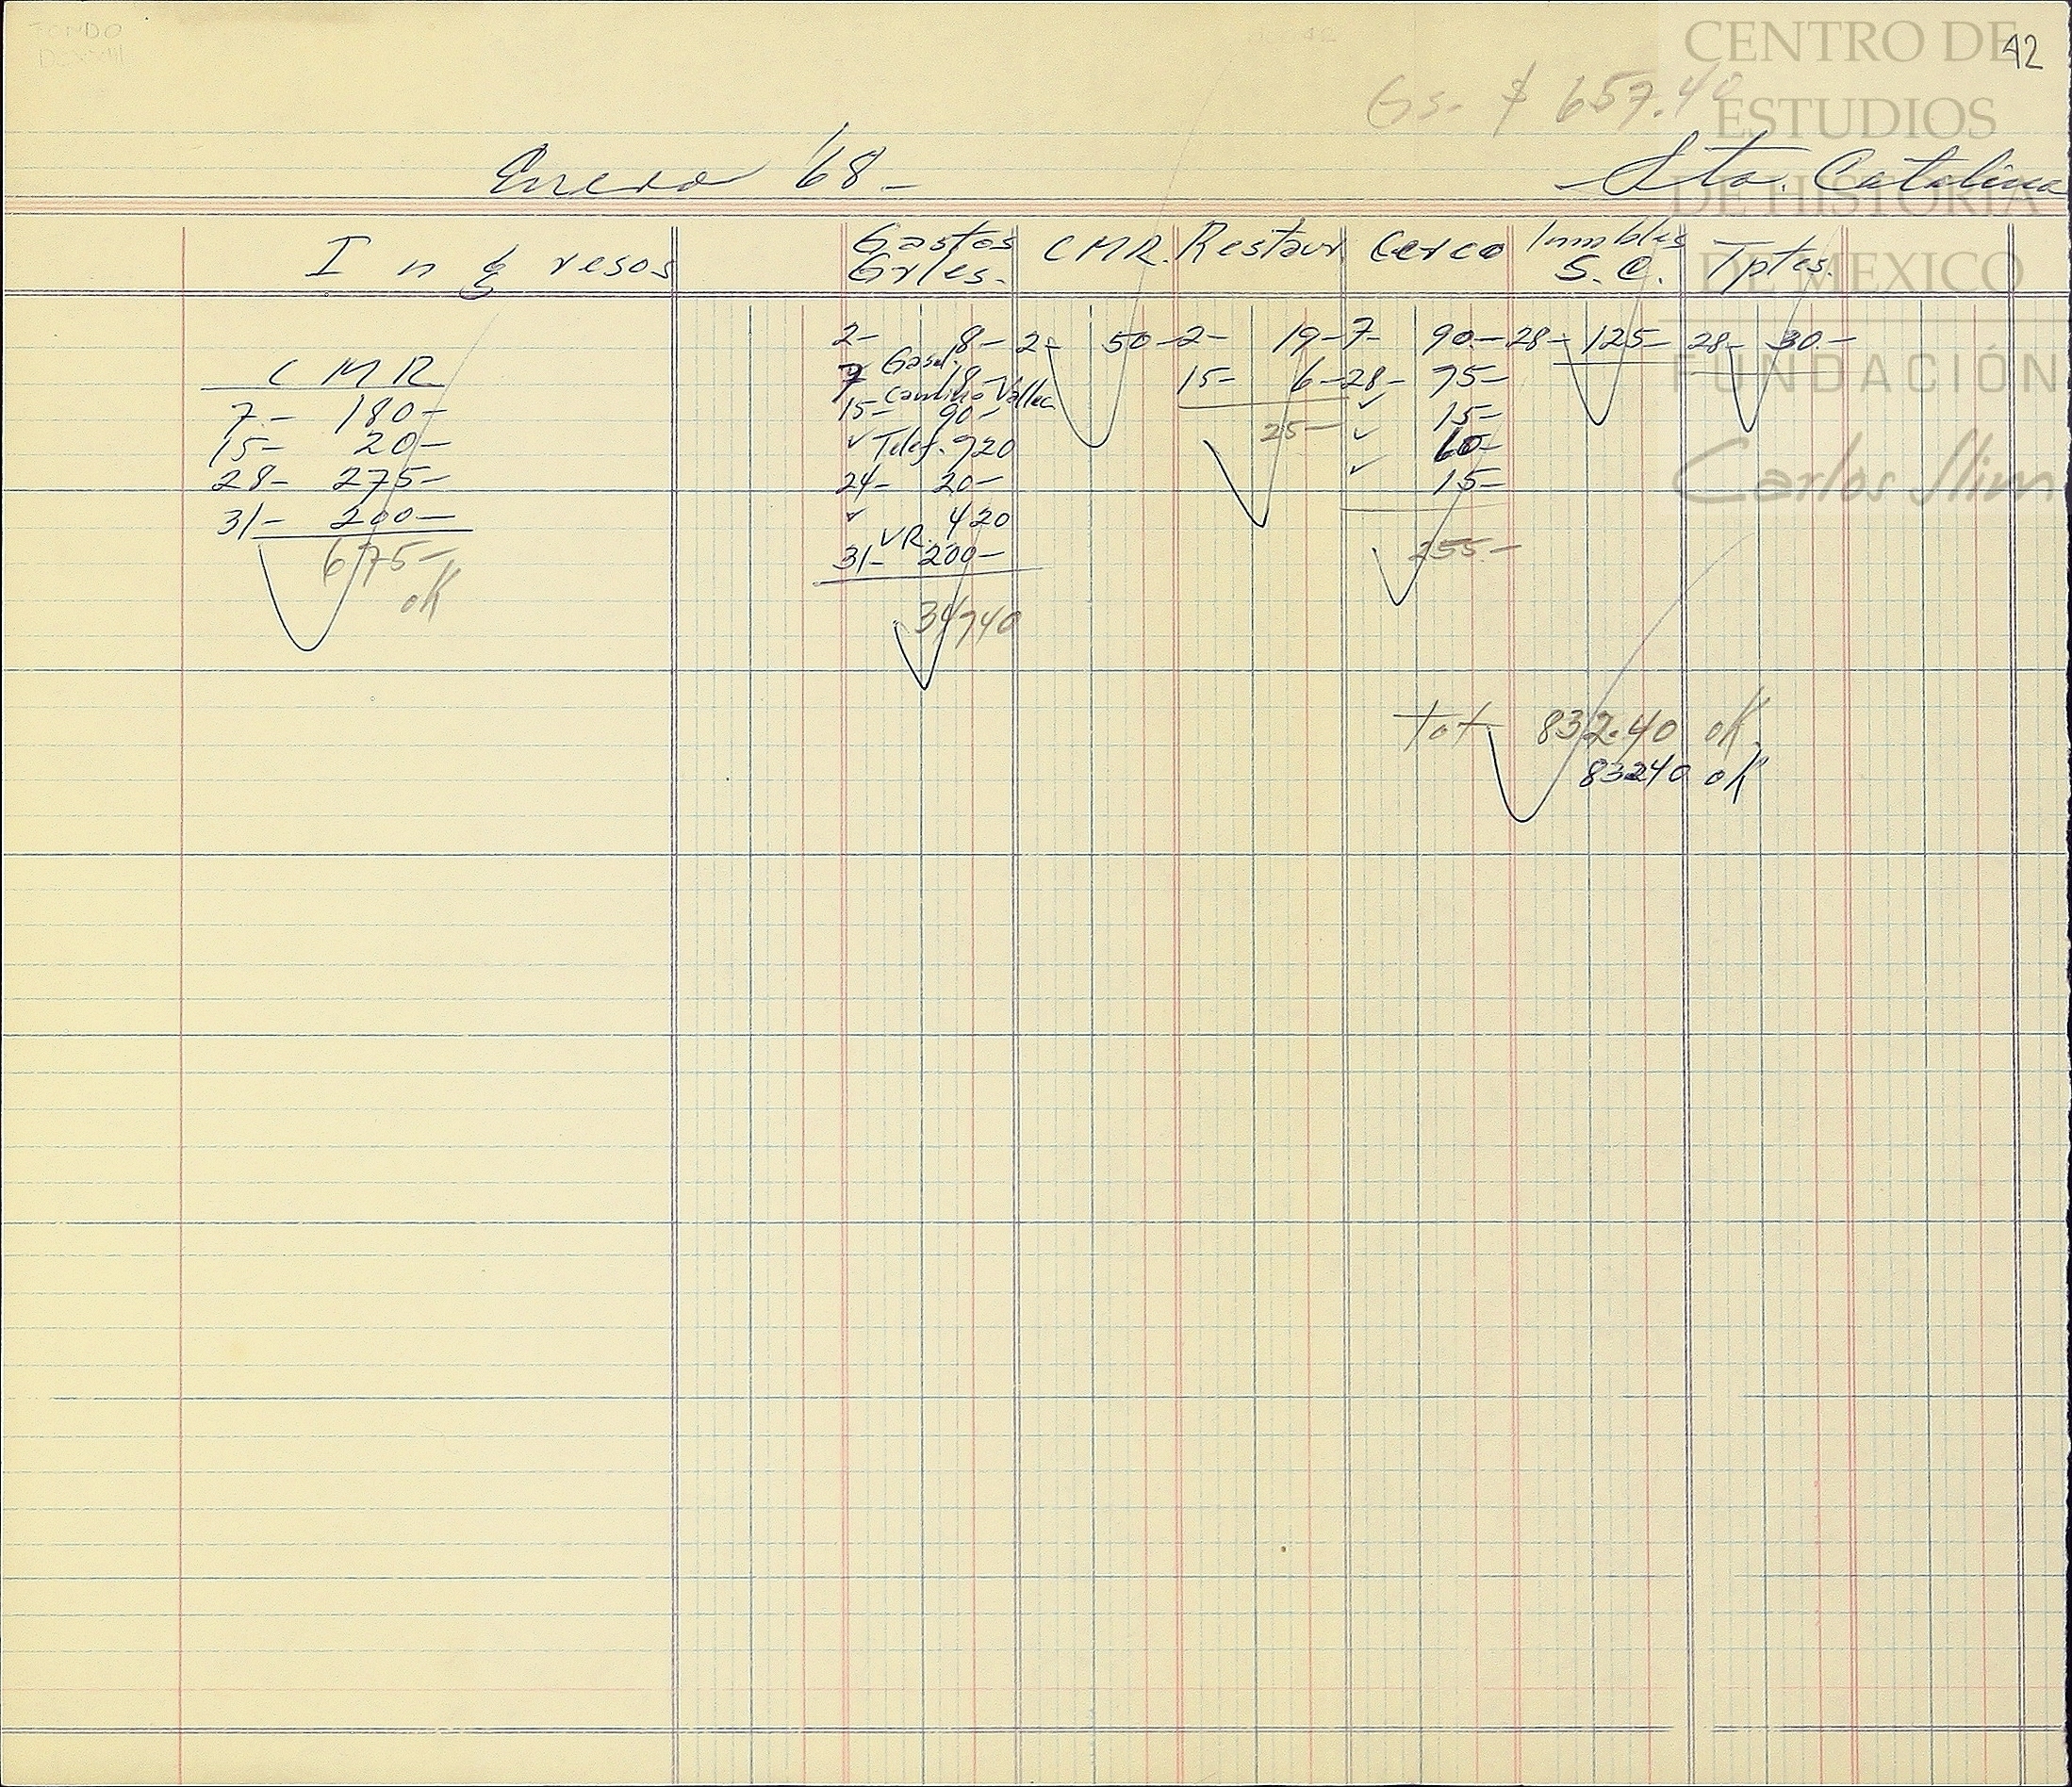 FONDO
42
CENTRO DE
ESTUDIOS
DE HISTORIA
DE MEXICO
FUNDACIÓN
Carlos Slim
Gs. $ 657.40
Enero '68- Sta. Catalina
Ingresos Gastos Grles. CMR. Restaur Cerco Inmbles S.C. Tptes.
CMR
7- 180-
15- 20-
28- 275-
31- 200-
675-
ok
2- 8-
Gasol.
7 18-
15- 90-
✓ Telef. 720
24- 20-
✓ 420
VR.
31- 200-
34740
2- 50-
2- 19-
15- 6-
25-
7- 90-
28- 75-
✓ 15-
✓ 60-
✓ 15-
255-
28- 125-
28- 30-
Tot- 832.40 ok
83240 ok